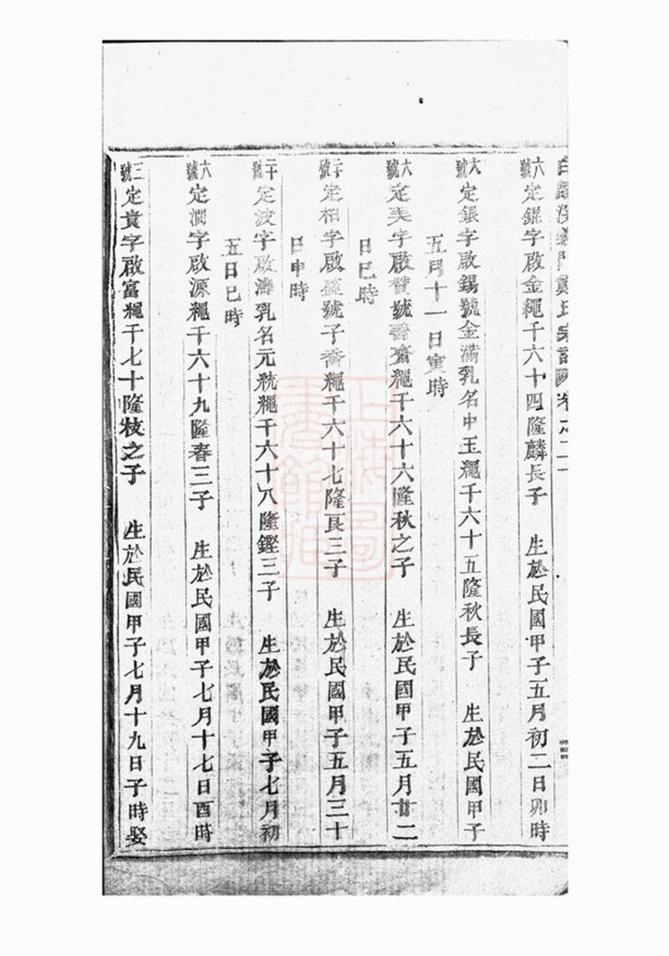 鄭氏宗譜卷之二十
六號定錕字啟金繩千六十四隆麟長子 生於民國甲子五月初二日卯時
大號定銀字啟錫號金滿乳名中玉繩千六十五隆秋長子 生於民國甲子
五月十一日寅時
六號定美字啟贊號 齋繩千六十六隆秋之子 生於民國甲子五月廿二
日巳時
二十號定相字啟 號子喬繩千六十七隆艮三子 生於民國甲子五月三十
日申時
三十號定波字啟濤乳名元統繩千六十八隆鏗三子 生於民國甲子七月初
五日巳時
六號定澗字啟源繩千六十九隆春三子 生於民國甲子七月十七日酉時
三號定貴字啟富繩千七十隆枝之子 生於民國甲子七月十九日子時娶
上海圖書館